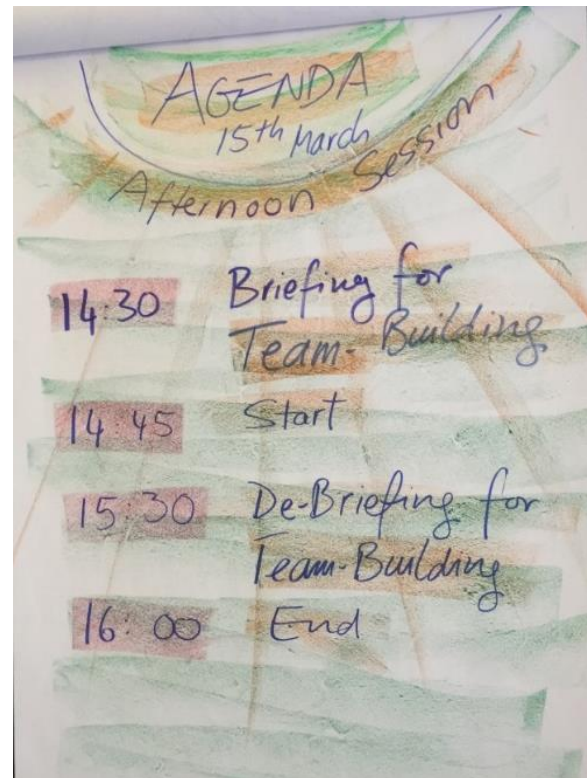 AGENDA
15th March
Afternoon Session
14:30 Briefing for
Team-Building
14:45 Start
15:30 De-Briefing for
Team-Building
16:00 End